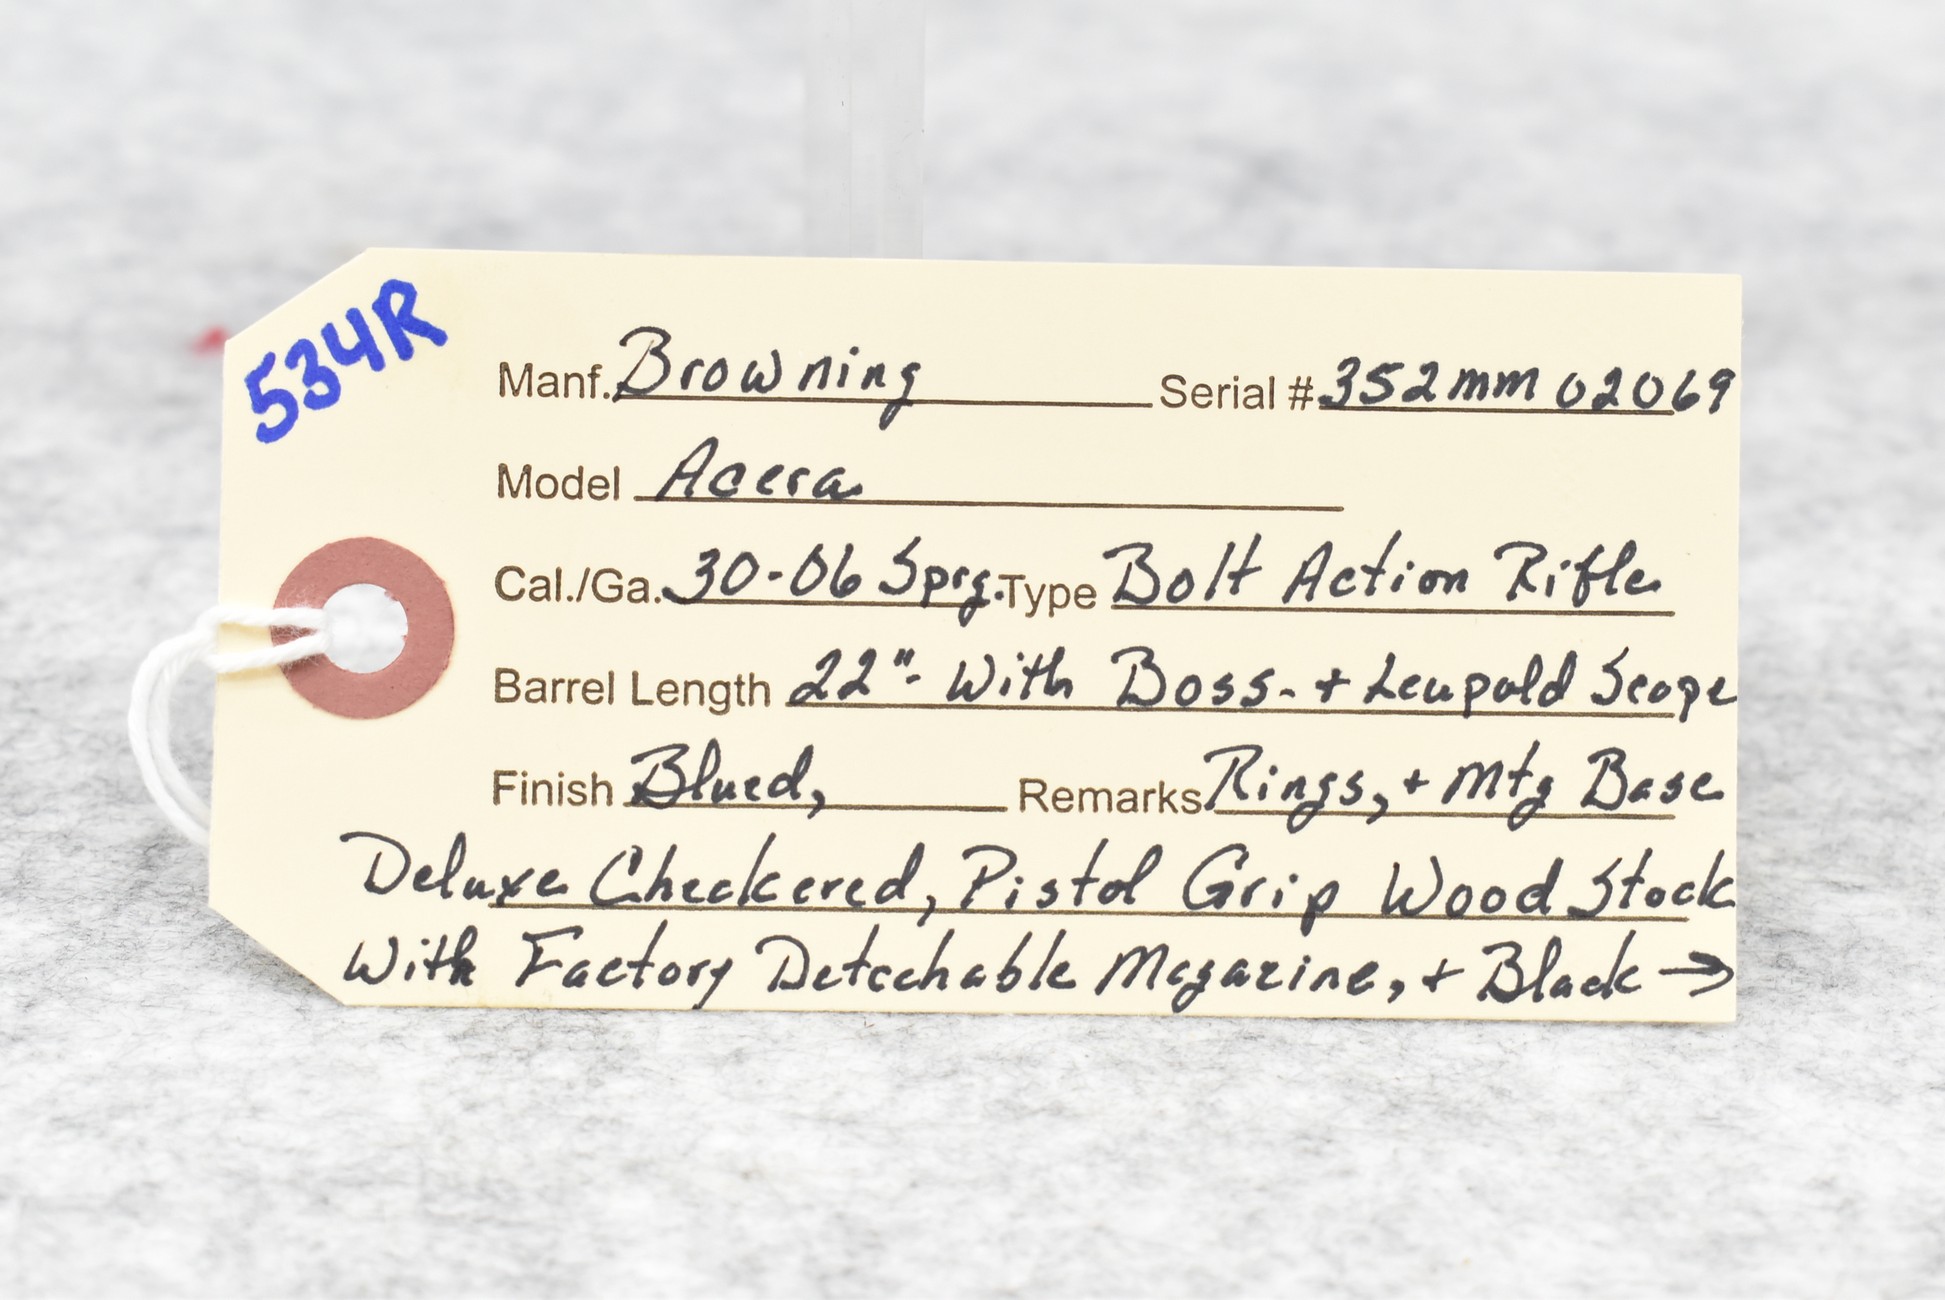 534R
Manf. Browning Serial # 352mm02069
Model Acera
Cal./Ga. 30-06 Sprg. Type Bolt Action Rifle
Barrel Length 22" - With Boss - + Leupold Scope
Finish Blued, Remarks Rings, + Mtg Base
Deluxe Checkered, Pistol Grip Wood Stock
With Factory Detachable Magazine, + Black →